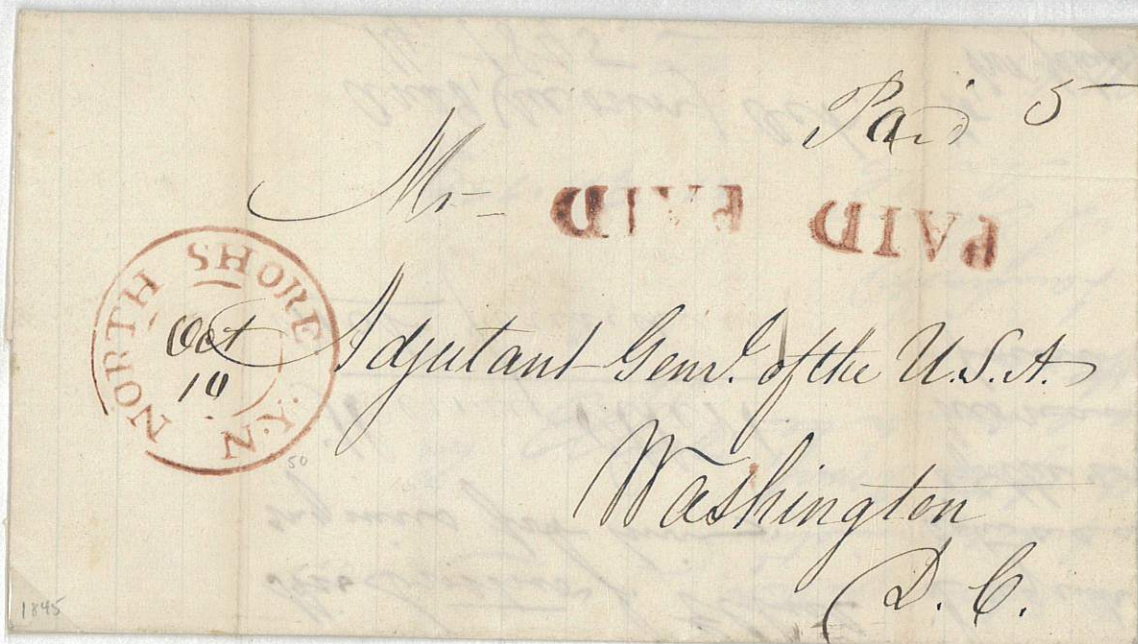 Paid 5
Mr
PAID PAID
NORTH SHORE N.Y.
Oct
10
Adjutant Genl. of the U.S.A.
Washington
D. C.
50
1845